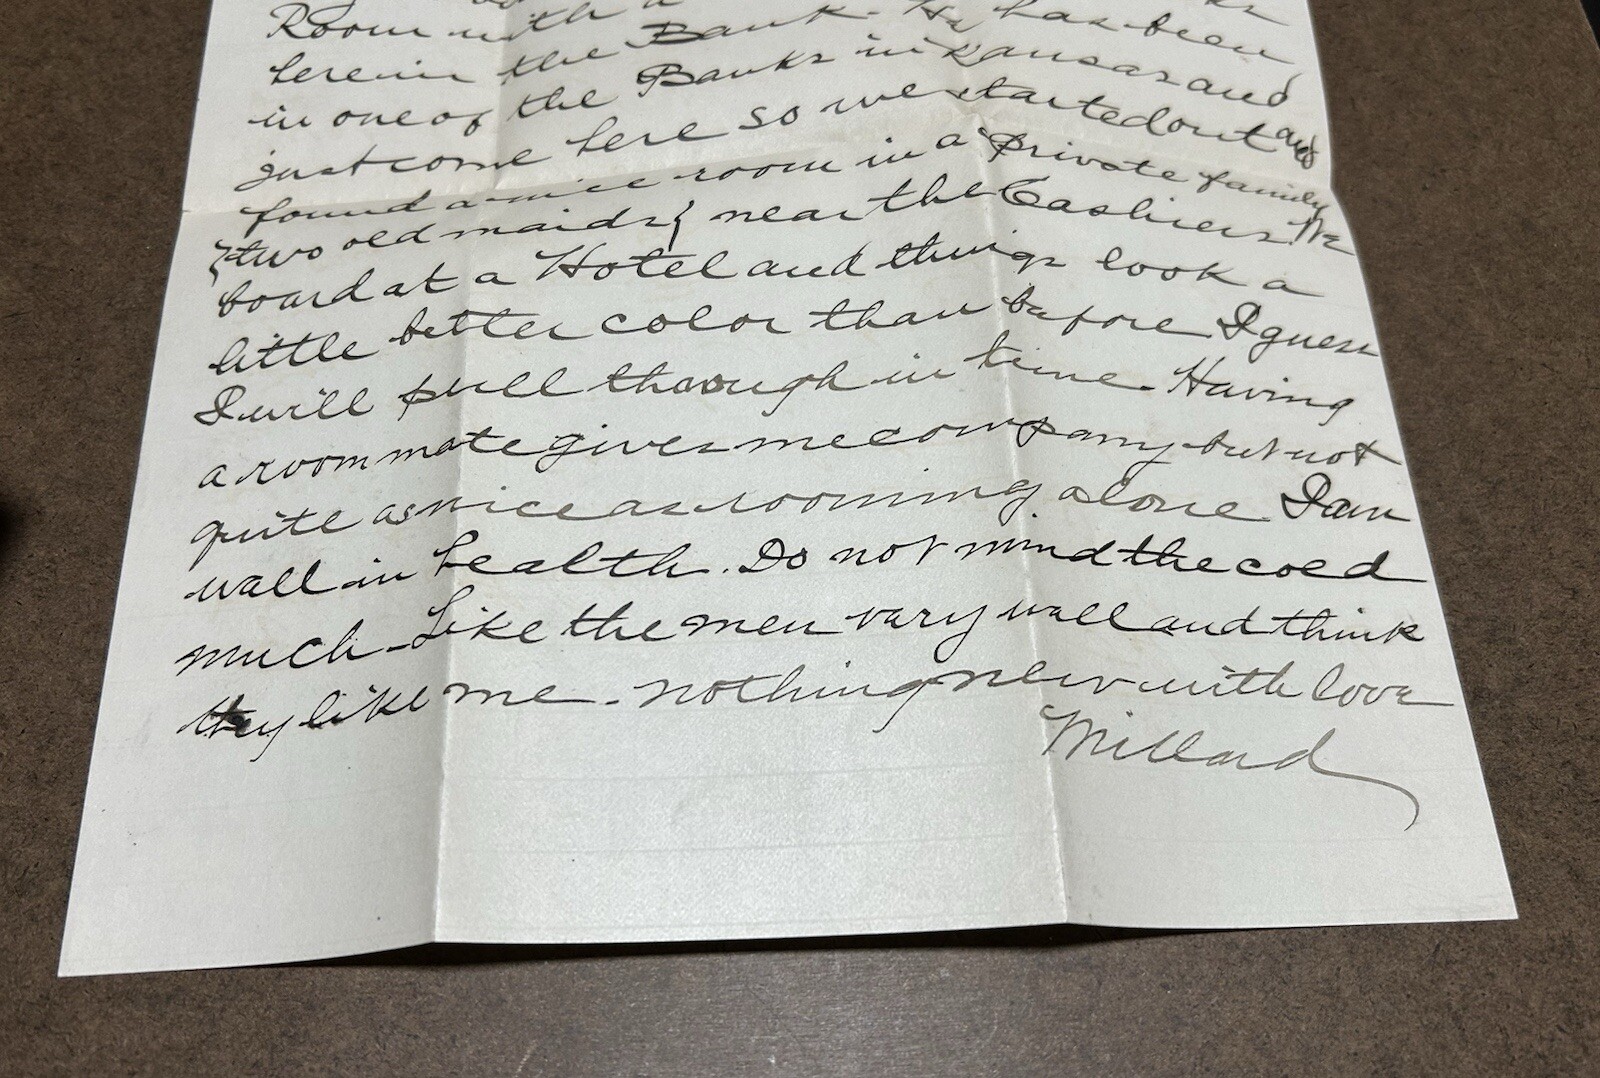 Room with a
here in the Bank. He has been
in one of the Banks in Kansas and
just come here so we started out and
found a nice room in a private family
{two old maids} near the Cashiers. We
board at a Hotel and things look a
little better color than before I guess
I will pull through in time. Having
a room mate gives me company but not
quite as nice as rooming alone I am
wall in health. Do not mind the cold
much. Like the men vary wall and think
they like me. nothing new with love
Millard